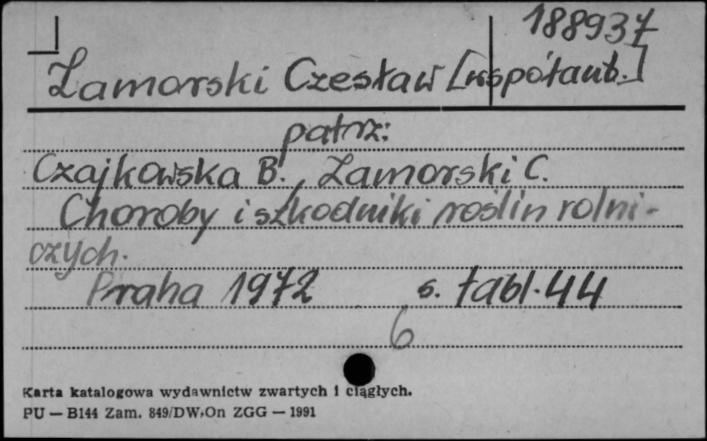 188937
Zamorski Czesław [współaut.]
patrz:
Czajkowska B., Zamorski C.
Choroby i szkodniki roślin rolni-
czych.
Praha 1972 s. tabl. 44
6
Karta katalogowa wydawnictw zwartych i ciągłych.
PU — B144 Zam. 849/DW/On ZGG — 1991